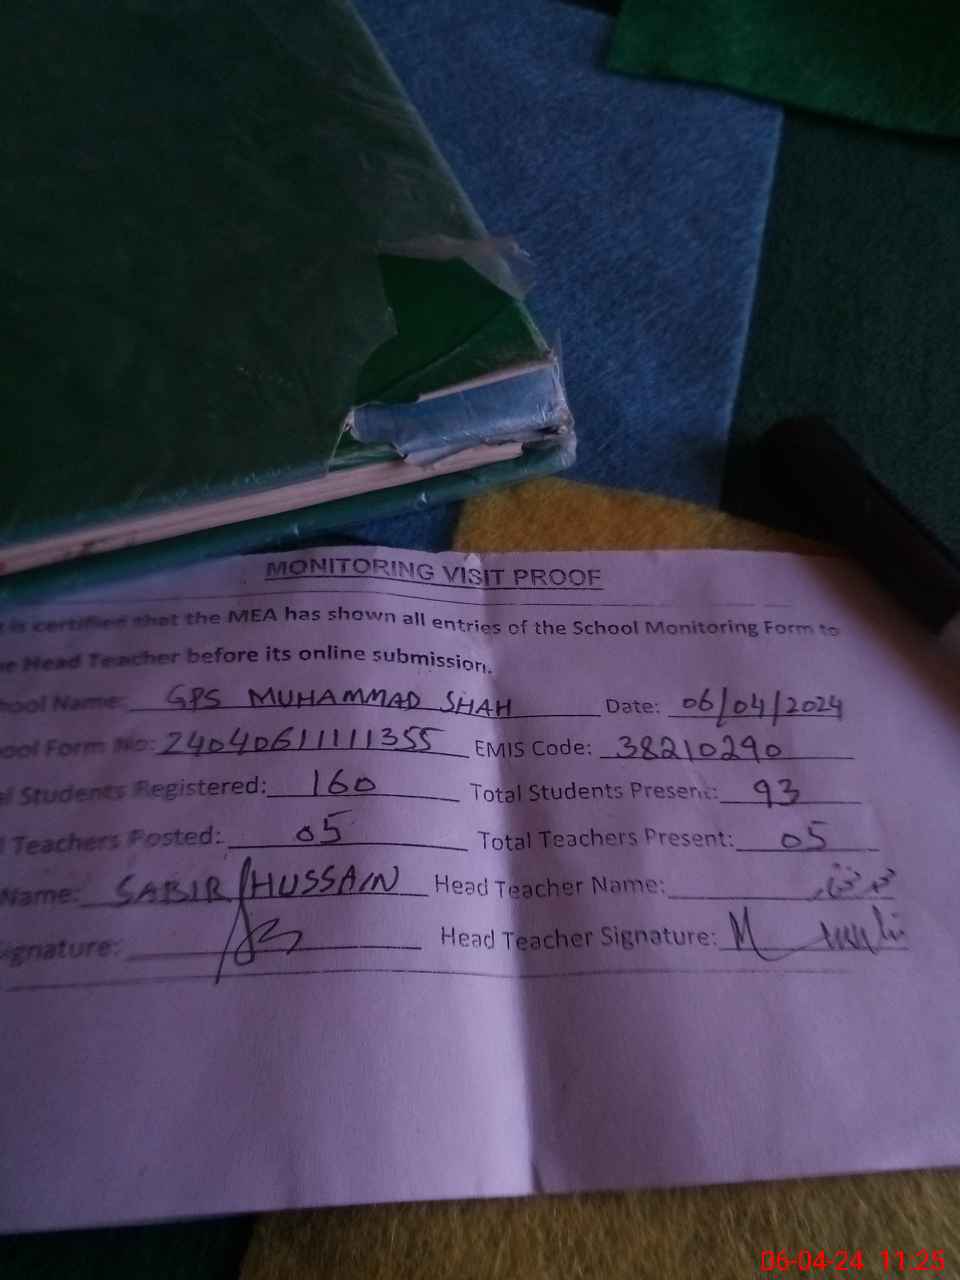 MONITORING VISIT PROOF
is certified that the MEA has shown all entries of the School Monitoring Form to
e Head Teacher before its online submission.
hool Name: GPS MUHAMMAD SHAH Date: 06/04/2024
ool Form No: 24040611111355 EMIS Code: 38210290
al Students Registered: 160 Total Students Present: 93
l Teachers Posted: 05 Total Teachers Present: 05
Name: SABIR HUSSAIN Head Teacher Name:
ignature: Head Teacher Signature:
06-04-24 11:25